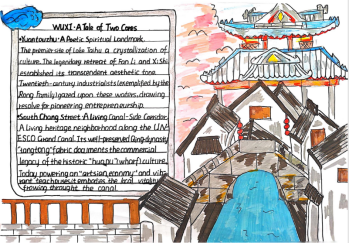 WUXI·A Tale of Two Cores
•Yuantouzhu·A Poetic Spiritual Landmark.
The premier site of Lake Taihu a crystallization of
culture. The legendary retreat of Fan Li and Xi Shi
established its transcendent aesthetic tone.
Twentieth-century industrialists (exemplified by the
Rong Family) gazed upon these waters, drawing
resolve for pioneering entrepreneurship.
•South Chang Street·A Living Canal-Side Corridor.
A living heritage neighborhood along the UN
ESCO Grand Canal. Its well-preserved Qing dynasty
fabric documents the commercial
legacy of the historic (wharf) culture.
Today powering an "artisan economy" and vib
rant teahouses, it embodies the local vitality
flowing through the canal.